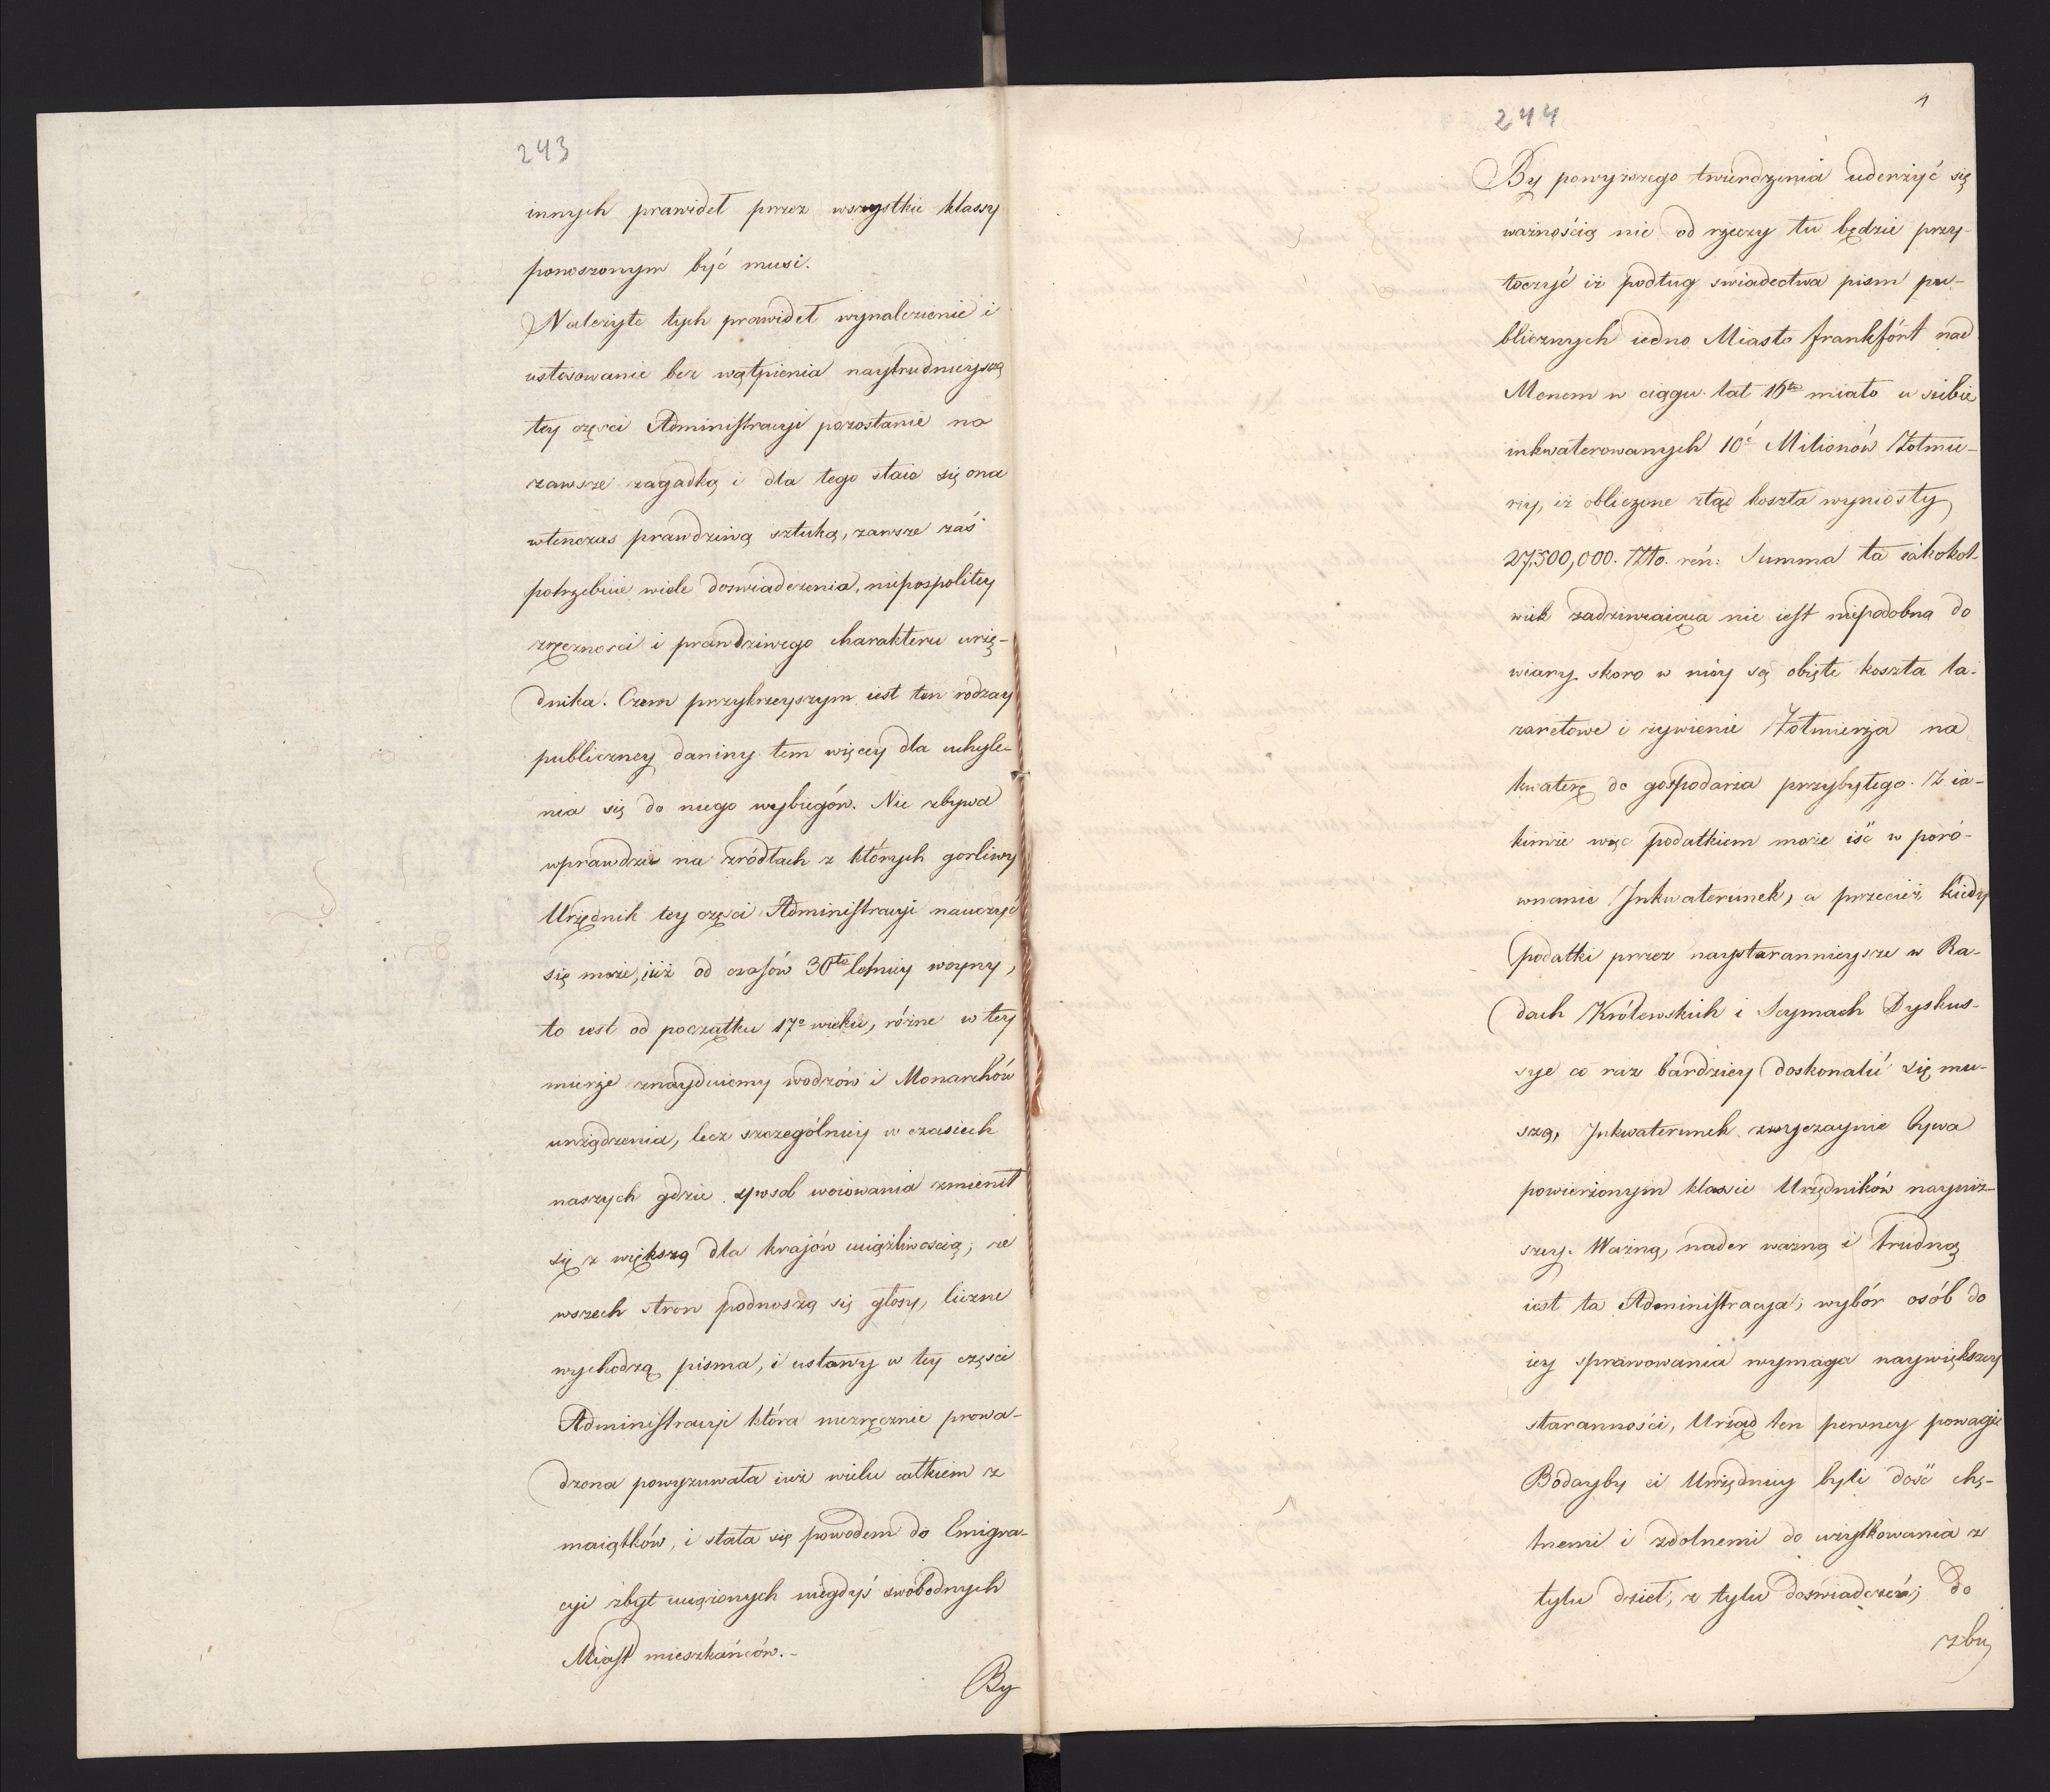 243
innych prawideł przez wszystkie klassy
ponoszonym być musi.
Należyte tych prawideł wynalezienie i
ustosowanie bez wątpienia naytrudnieyszą
tey częsci Administracyi pozostanie na
zawsze zagadką i dla tego staie się ona
wtenczas prawdziwą sztuką, zawsze zaś
potrzebuie wiele doswiadczenia, niepospolitey
zręcznosci i prawdziwego charakteru urzę-
dnika. Czem przykrzeyszym iest ten rodzay
publiczney daniny tem więcey dla uchyle-
nia się do niego wybiegów. Nie zbywa
wprawdzie na zródłach z których gorliwy
Urzędnik tey częsci Administracyi nauczyć
się może, iuż od czasów 30to letniey woyny,
to iest od początku 17o wieku, różne w tey
mierze znayduiemy wodzów i Monarchów
urządzenia, lecz szczególniey w czasiech
naszych gdzie sposob woiowania zmienił
się z większą dla krajów uciążliwoscią; ze
wszech stron podnoszą się głosy, liczne
wychodzą pisma, i ustawy w tey częsci
Administracyi która niezręcznie prowa-
dzona powyzuwała iuż wielu całkiem z
maiątków, i stała się powodem do Emigra-
cyi zbyt uciążonych niegdyś swobodnych
Miast mieszkańców.-
By
244
1
By powyższego twierdzenia uderzyć się
ważnością nie od rzeczy tu będzie przy-
toczyć iż podług swiadectwa pism pu-
blicznych iedno Miasto frankfórt nad
Menem w ciągu lat 16tu miało u siebie
inkwaterowanych 10ć Milionów Żołnie-
rzy, iż obliczone ztąd koszta wyniosły
27,500,000. Złto. reń: Summa ta iakokol-
wiek zadziwiaiąca nie iest niepodobną do
wiary skoro w niéy są obięte koszta la-
zaretowe i żywienie Żołnierza na
kwaterę do gospodarza przybyłego. Z ia-
kimże więc podatkiem może iść w poró-
wnanie Inkwaterunek, a przecież kiedy
podatki przez naystarannieysze w Ra-
dach Królewskich i Seymach Dyskus-
sye co raz bardziey doskonalić się mu-
szą, Inkwaterunek zwyczaynie bywa
powierzonym klassie Urzędników nayniż-
szey. Ważną, nader ważną i trudną
iest ta Administracya; wybór osób do
iey sprawowania wymaga naywiększey
staranności, Urząd ten pewney powagi
Bodayby ci Urzędnicy byli dość chę-
tnemi i zdolnemi do użytkowania z
tylu dzieł, z tylu doświadczeń; do
zbu